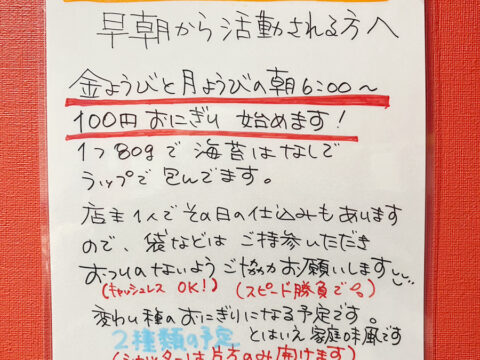 早朝から活動される方へ
金ようびと月ようびの朝6:00～
100円おにぎり 始めます！
1つ80gで海苔はなしで
ラップで包んでます。
店主1人でその日の仕込みもあります
ので、袋などはご持参いただき
おつりのないようご協力お願いします
(キャッシュレスOK!) (スピード勝負で。)
変わり種のおにぎりになる予定です。
2種類の予定 とはいえ家庭味風です
(シャッターは片方のみ開けます)